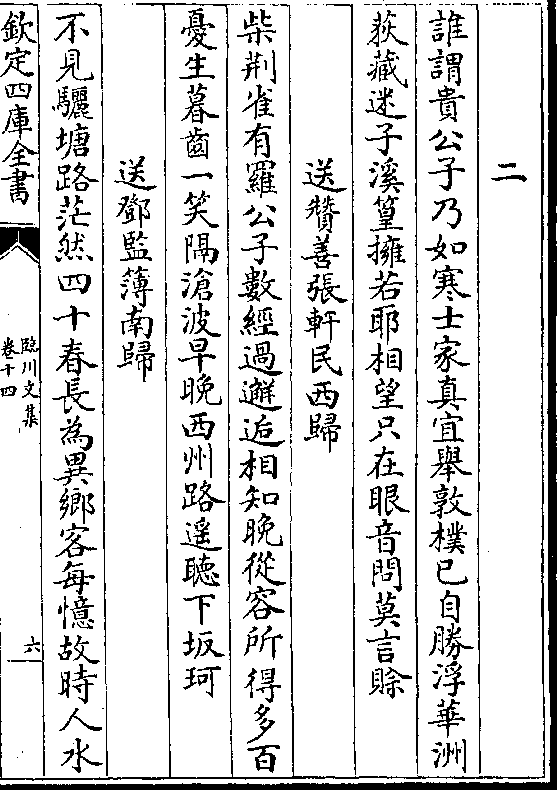 二
誰謂貴公子乃如寒士家真宜舉敦樸已自勝浮華洲
荻藏迷子溪篁擁若耶相望只在眼音問莫言賖
送贊善張軒民西歸
柴荆雀有羅公子數經過邂逅相知晚從容所得多百
憂生暮齒一笑隔滄波早晚西州路遥聽下坂珂
送鄧監簿南歸
不見驪塘路茫然四十春長為異鄉客每憶故時人水
欽定四庫全書
臨川文集
卷十四
六